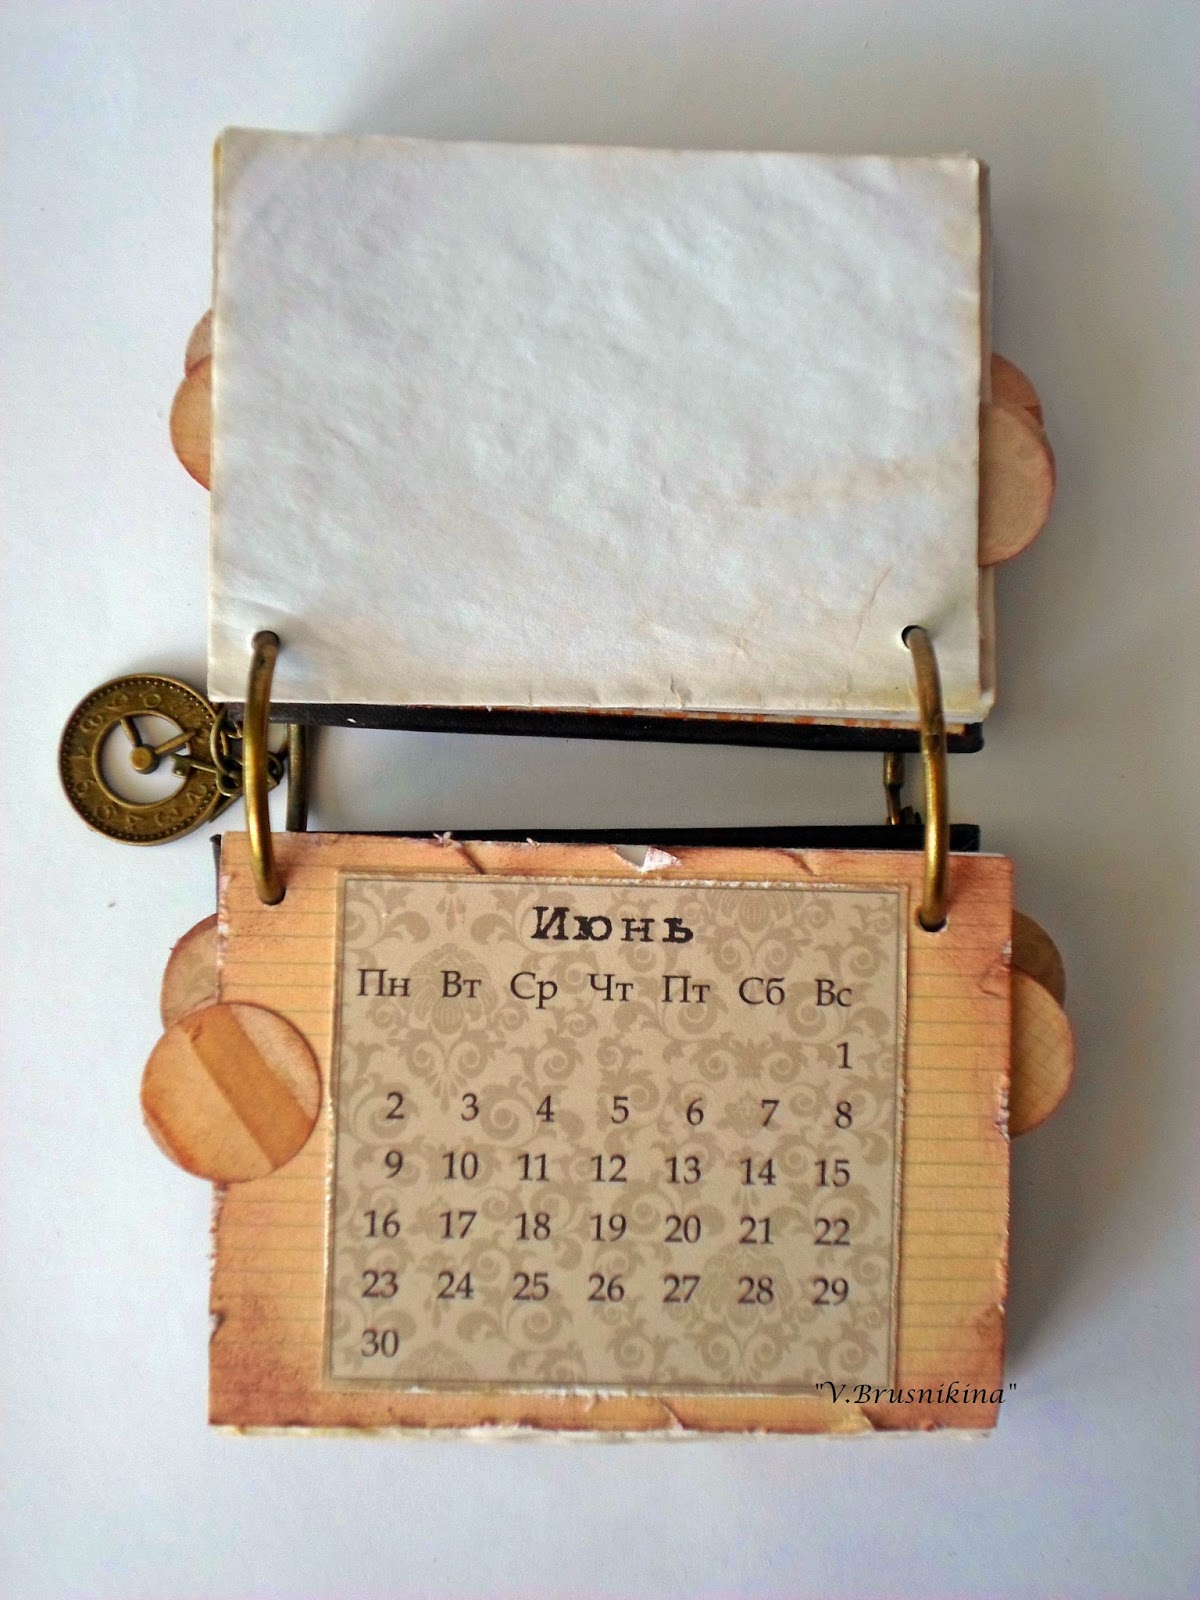 Июнь
Пн Вт Ср Чт Пт Сб Вс
1
2 3 4 5 6 7 8
9 10 11 12 13 14 15
16 17 18 19 20 21 22
23 24 25 26 27 28 29
30
"V.Brusnikina"